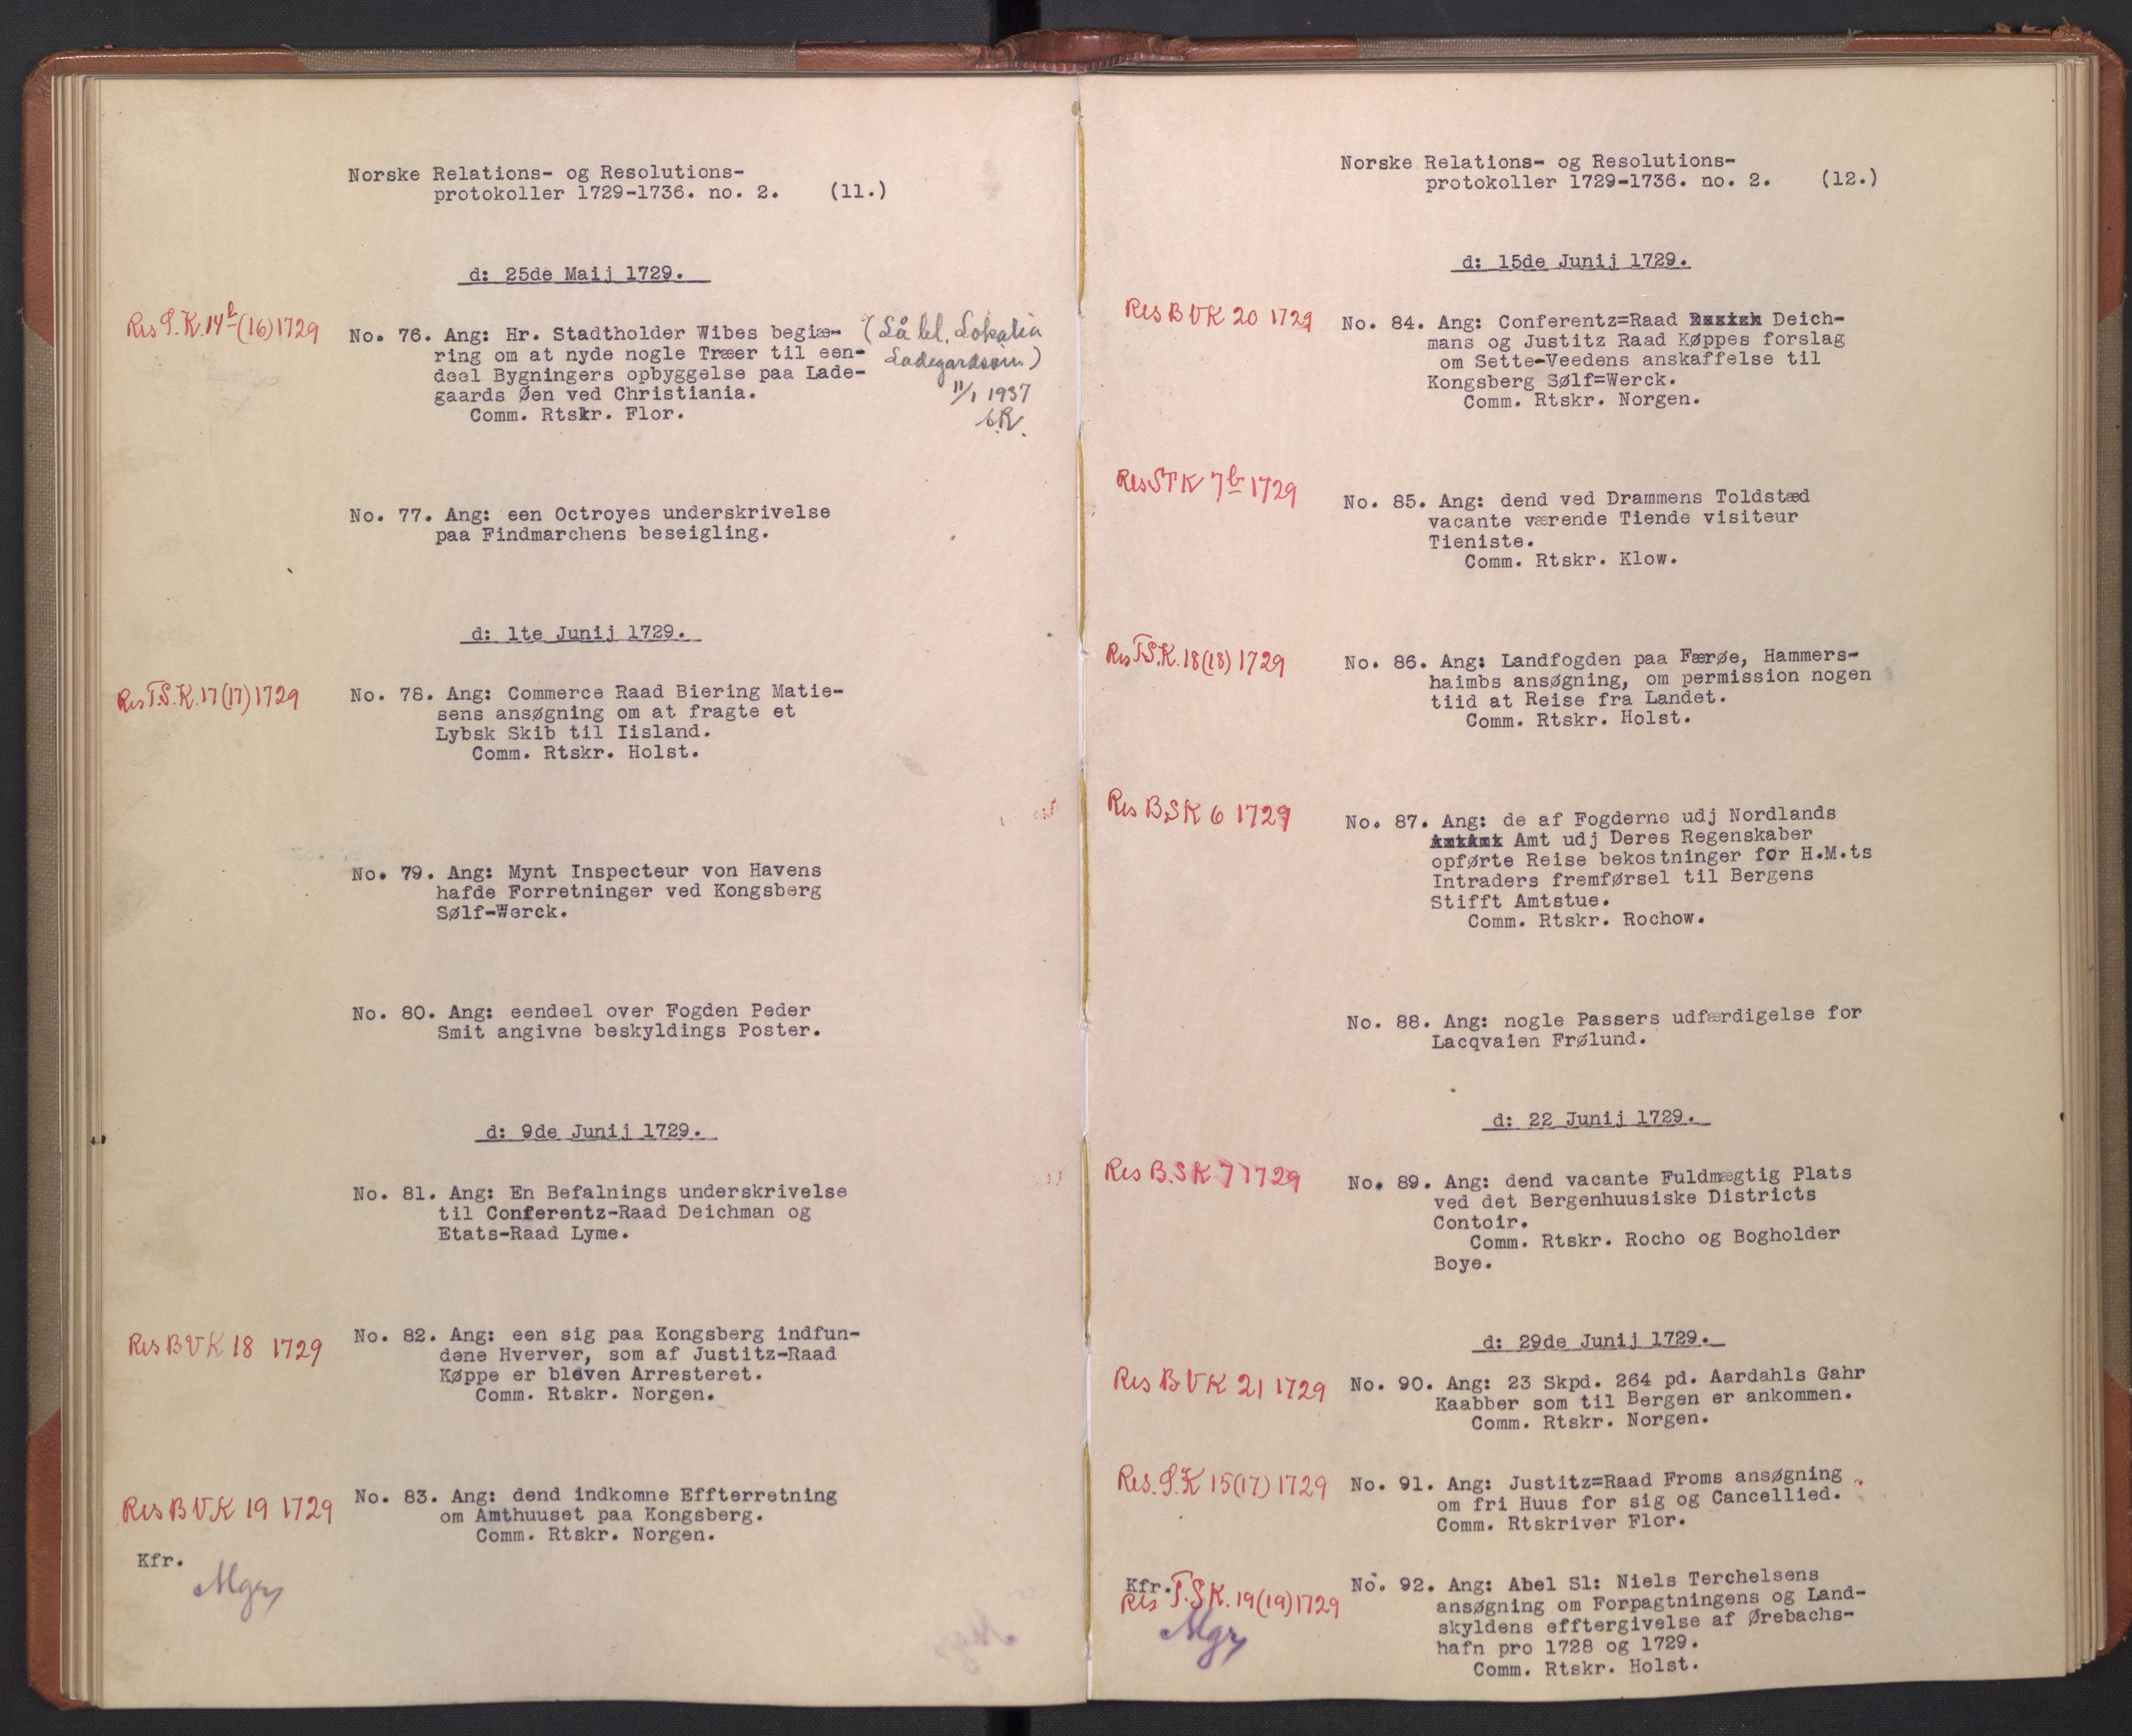 Norske Relations- og Resolutions-
protokoller 1729-1736. no. 2. (11.)
d: 25de Maij 1729.
Res S.K. 14b (16) 1729
No. 76. Ang: Hr. Stadtholder Wibes begiæ-
ring om at nyde nogle Træer til een-
deel Bygningers opbyggelse paa Lade-
gaards Øen ved Christiania.
Comm. Rtskr. Flor.
(Så bl. Lokalia
Ladegardsøin)
11/1 1937
No. 77. Ang: een Octroyes underskrivelse
paa Findmarchens beseigling.
d: 1te Junij 1729.
Res T.S.K. 17 (17) 1729
No. 78. Ang: Commerce Raad Biering Matie-
sens ansøgning om at fragte et
Lybsk Skib til Iisland.
Comm. Rtskr. Holst.
No. 79. Ang: Mynt Inspecteur von Havens
hafde Forretninger ved Kongsberg
Sølf-Werck.
No. 80. Ang: eendeel over Fogden Peder
Smit angivne beskyldings Poster.
d: 9de Junij 1729.
No. 81. Ang: En Befalnings underskrivelse
til Conferentz-Raad Deichman og
Etats-Raad Lyme.
Res B V K 18 1729
No. 82. Ang: een sig paa Kongsberg indfun-
dene Hverver, som af Justitz-Raad
Køppe er bleven Arresteret.
Comm. Rtskr. Norgen.
Res B V K 19 1729
No. 83. Ang: dend indkomne Effterretning
om Amthuuset paa Kongsberg.
Comm. Rtskr. Norgen.
Kfr.
Mgry
Norske Relations- og Resolutions-
protokoller 1729-1736. no. 2. (12.)
d: 15de Junij 1729.
Res B V K 20 1729
No. 84. Ang: Conferentz=Raad Deich-
mans og Justitz Raad Køppes forslag
om Sette-Veedens anskaffelse til
Kongsberg Sølf=Werck.
Comm. Rtskr. Norgen.
Res S T K 7b 1729
No. 85. Ang: dend ved Drammens Toldstæd
vacante værende Tiende visiteur
Tieniste.
Comm. Rtskr. Klow.
Res T.S.K. 18 (18) 1729
No. 86. Ang: Landfogden paa Færøe, Hammers-
haimbs ansøgning, om permission nogen
tiid at Reise fra Landet.
Comm. Rtskr. Holst.
Res B.S K 6 1729
No. 87. Ang: de af Fogderne udj Nordlands
Amt udj Deres Regenskaber
opførte Reise bekostninger for H.M.ts
Intraders fremførsel til Bergens
Stifft Amtstue.
Comm. Rtskr. Rochow.
No. 88. Ang: nogle Passers udfærdigelse for
Lacqvaien Frølund.
d: 22 Junij 1729.
Res B.S K 7 1729
No. 89. Ang: dend vacante Fuldmægtig Plats
ved det Bergenhuusiske Districts
Contoir.
Comm. Rtskr. Rocho og Bogholder
Boye.
d: 29de Junij 1729.
Res B V K 21 1729
No. 90. Ang: 23 Skpd. 264 pd. Aardahls Gahr
Kaabber som til Bergen er ankommen.
Comm. Rtskr. Norgen.
Res. S.K 15 (17) 1729
No. 91. Ang: Justitz=Raad Froms ansøgning
om fri Huus for sig og Cancellied.
Comm. Rtskriver Flor.
Kfr.
Res T.S K. 19 (19) 1729
Mgry
No. 92. Ang: Abel Sl: Niels Terchelsens
ansøgning om Forpagtningens og Land-
skyldens efftergivelse af Ørebachs-
hafn pro 1728 og 1729.
Comm. Rtskr. Holst.